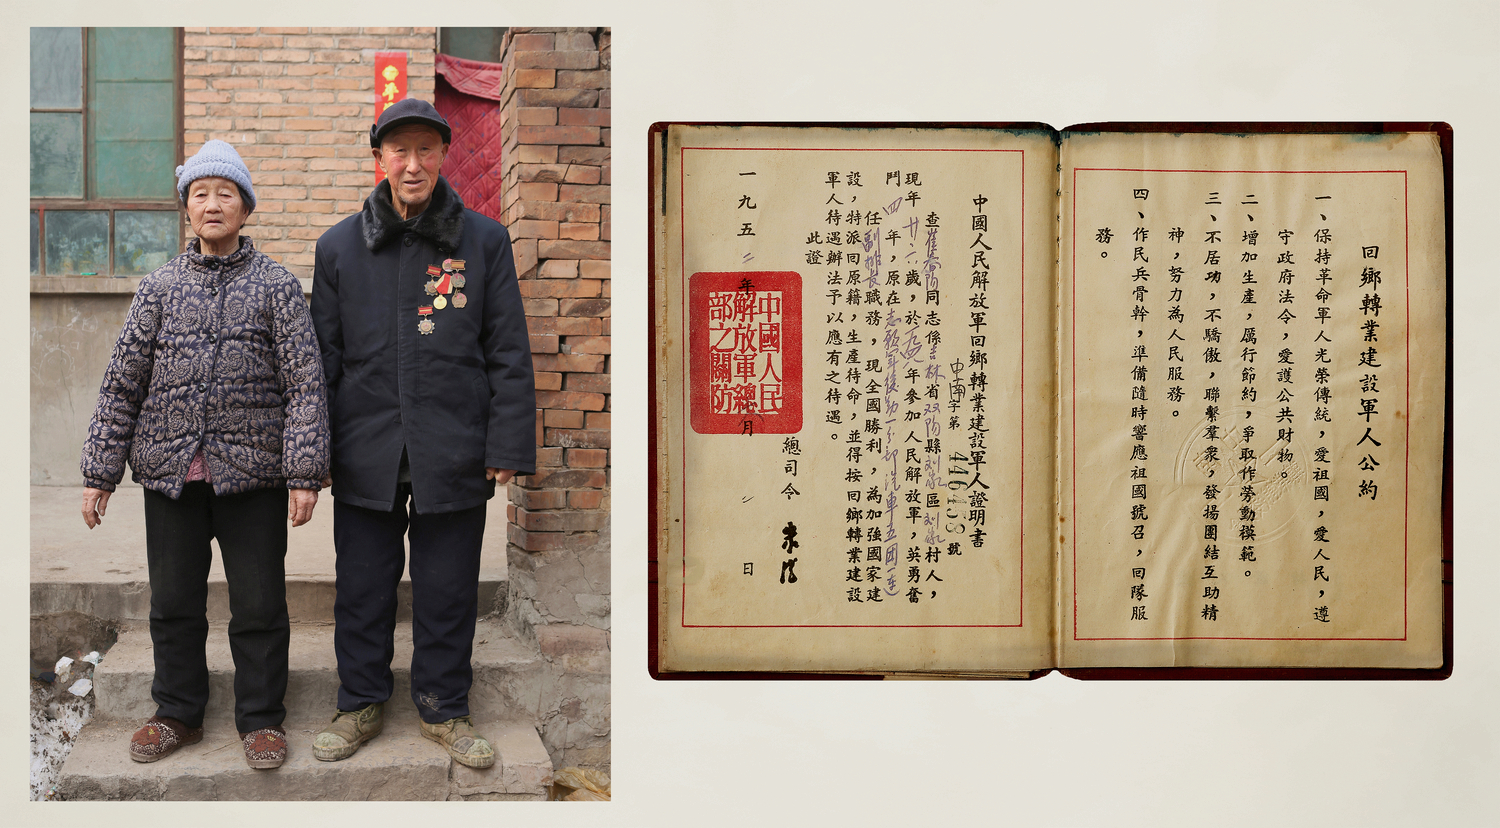 平
回鄉轉業建設軍人公約
一、保持革命軍人光榮傳統，愛祖國，愛人民，遵
守政府法令，愛護公共財物。
二、增加生產，厲行節約，爭取作勞動模範。
三、不居功，不驕傲，聯繫羣衆，發揚團結互助精
神，努力為人民服務。
四、作民兵骨幹，準備隨時響應祖國號召，回隊服
務。
中國人民解放軍回鄉轉業建設軍人證明書
中南字第446458號
查崔同志係吉林省双阳縣刘家區刘家村人，
現年廿六歲，於年參加人民解放軍，英勇奮
鬥四年，原在志願軍後勤一分部汽車五团一連
任副排長職務，現全國勝利，為加強國家建
設，特派回原籍，生產待命，並得按回鄉轉業建設
軍人待遇辦法予以應有之待遇。
此證
總司令 朱德
一九五二年月日
中國人民
解放軍總
部之關防